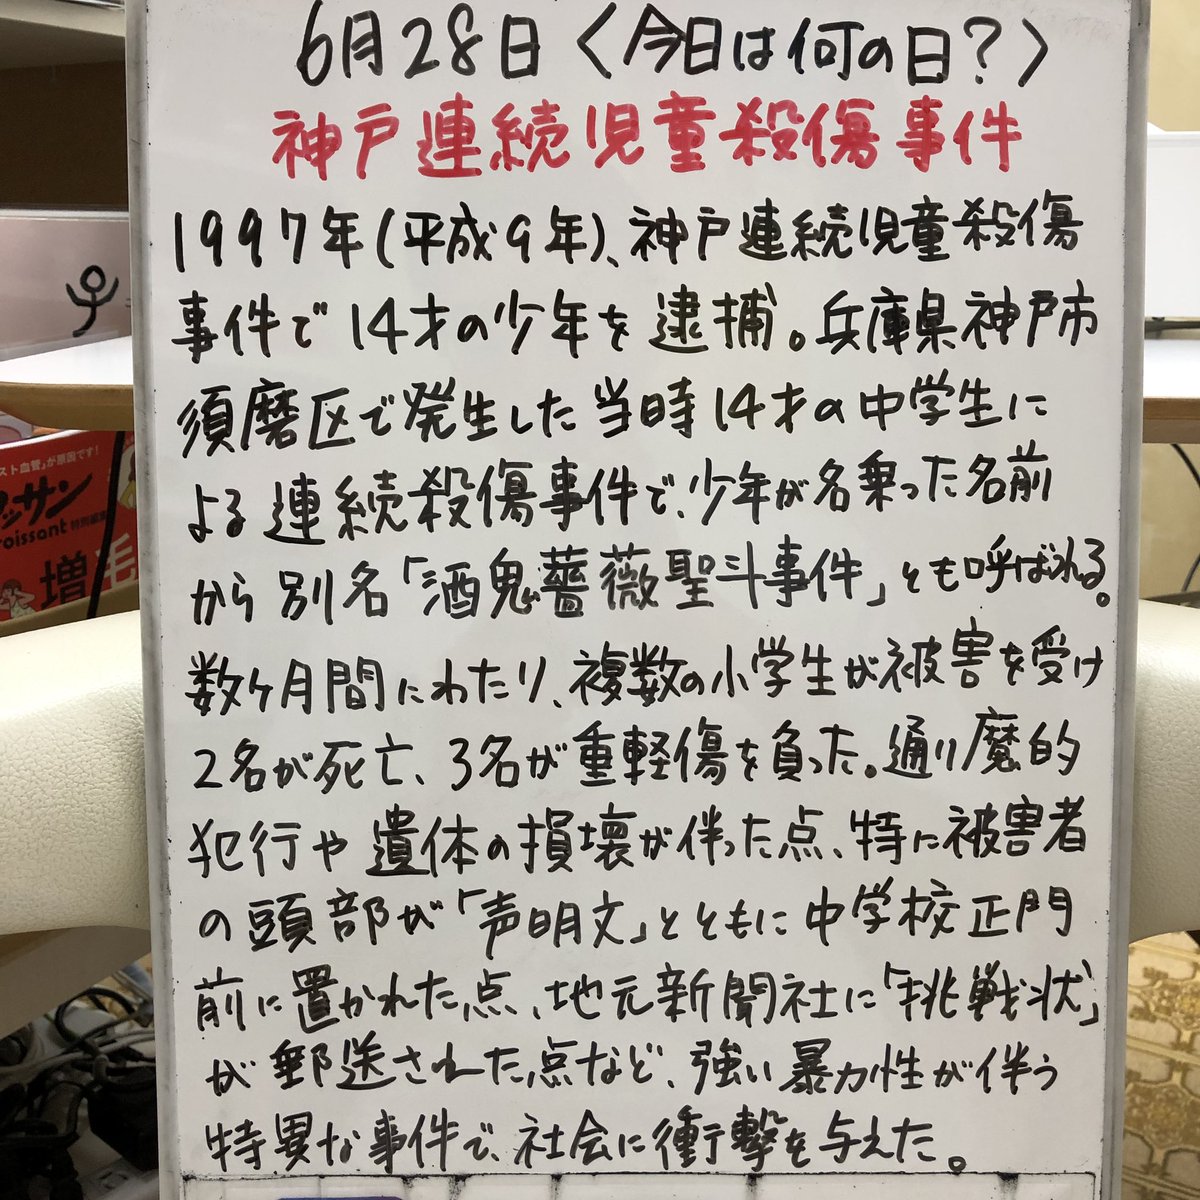 6月28日〈今日は何の日？〉
神戸連続児童殺傷事件
1997年(平成9年)、神戸連続児童殺傷
事件で14才の少年を逮捕。兵庫県神戸市
須磨区で発生した当時14才の中学生に
よる連続殺傷事件で、少年が名乗った名前
から別名「酒鬼薔薇聖斗事件」とも呼ばれる。
数ヶ月間にわたり、複数の小学生が被害を受け
2名が死亡、3名が重軽傷を負った。通り魔的
犯行や遺体の損壊が伴った点、特に被害者
の頭部が「声明文」とともに中学校正門
前に置かれた点、地元新聞社に「挑戦状」
が郵送された点など、強い暴力性が伴う
特異な事件で、社会に衝撃を与えた。
スト血管」が原因です！
ッサン
roissant 特別編集
増毛